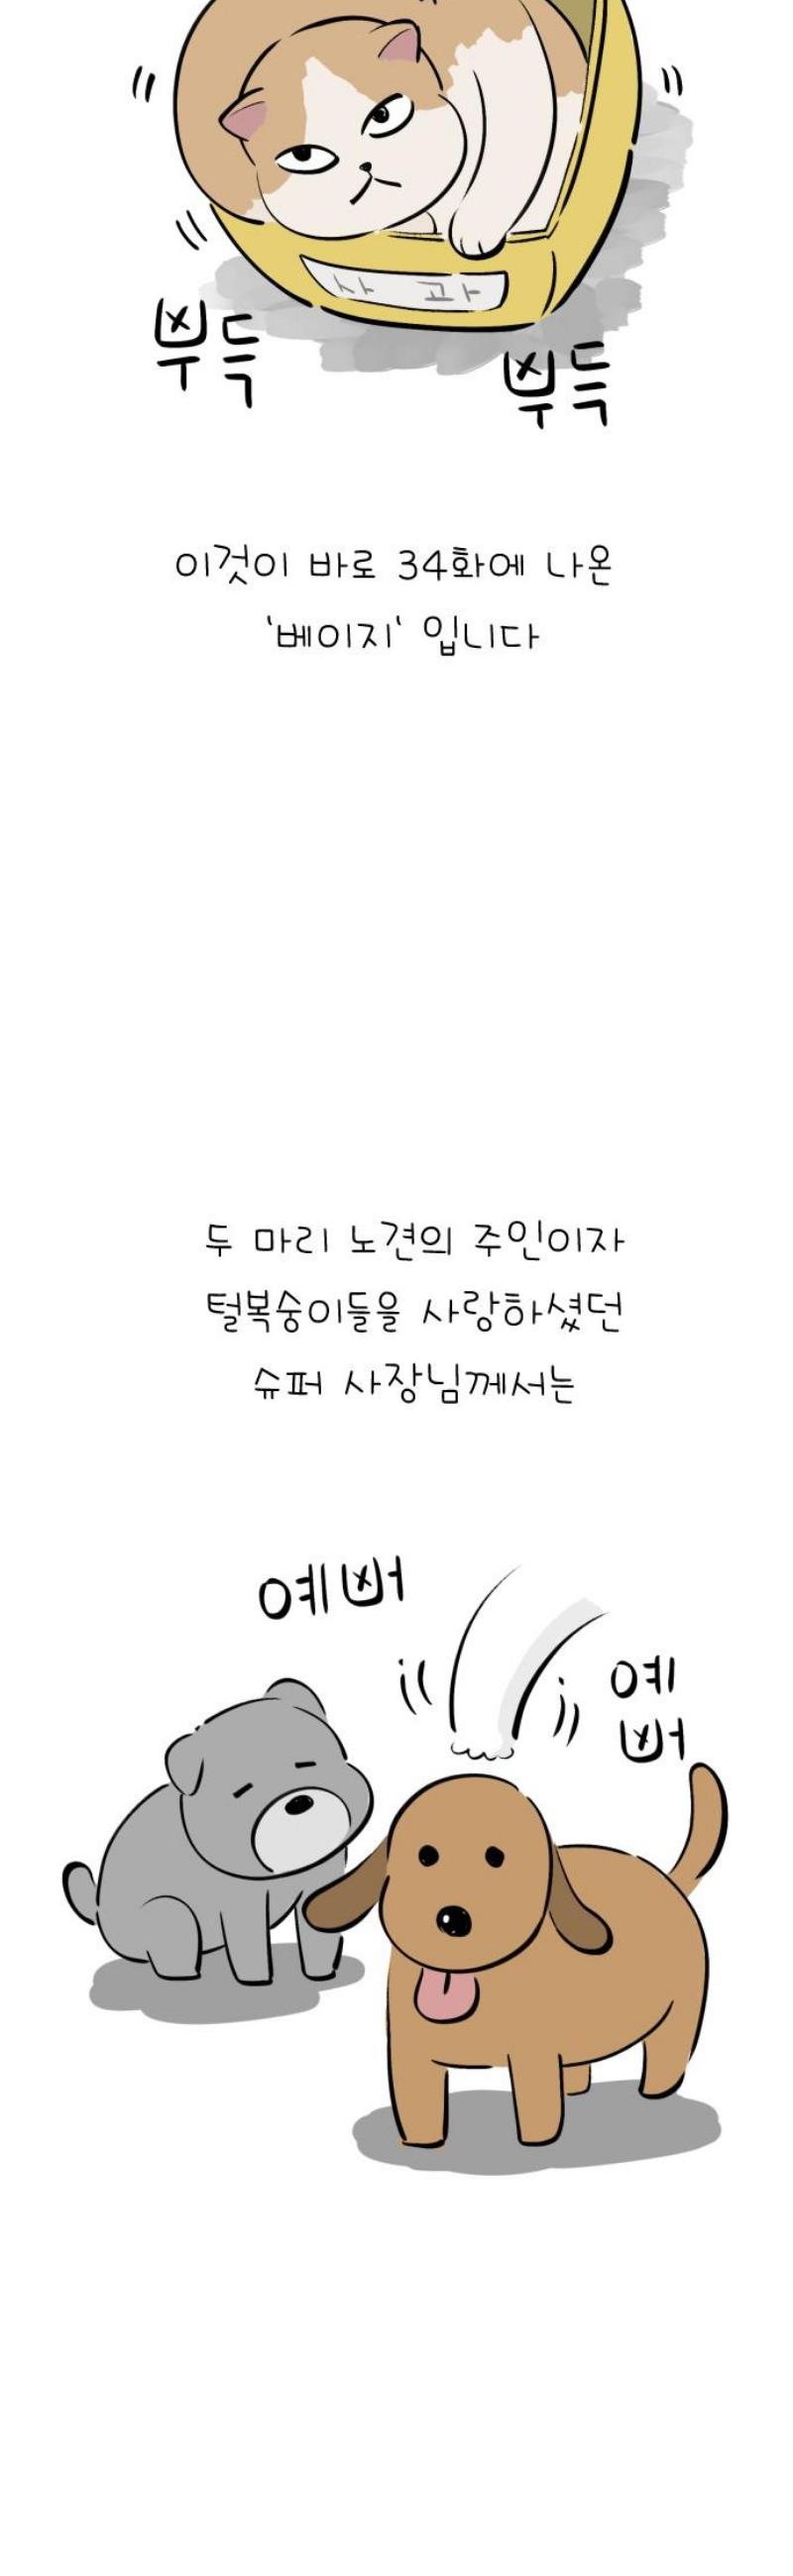 사 과
뿌득
뿌득
이것이 바로 34화에 나온
'베이지' 입니다
두 마리 노견의 주인이자
털복숭이들을 사랑하셨던
슈퍼 사장님께서는
예뻐
예
뻐